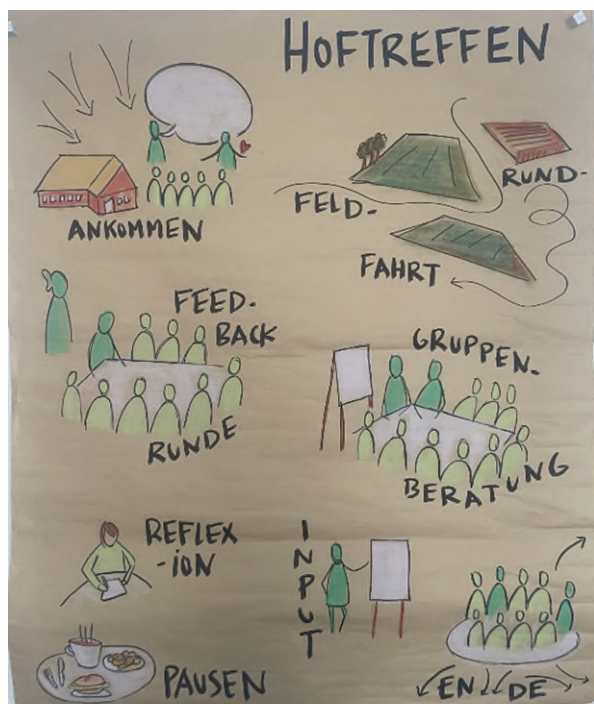 HOFTREFFEN
ANKOMMEN
FELD-
RUND-
FAHRT
FEED-
BACK
RUNDE
GRUPPEN-
BERATUNG
REFLEX
-ION
INPUT
PAUSEN
ENDE